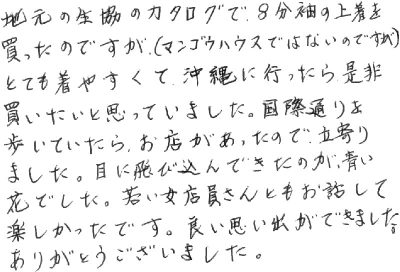 地元の生協のカタログで、8分袖の上着を
買ったのですが、(マンゴウハウスではないのですが)
とても着やすくて、沖縄に行ったら、是非
買いたいと思っていました。国際通りを
歩いていたら、お店があったので、立寄り
ました。目に飛び込んできたのが、青い
花でした。若い女店員さんともお話して
楽しかったです。良い思い出ができました。
ありがとうございました。